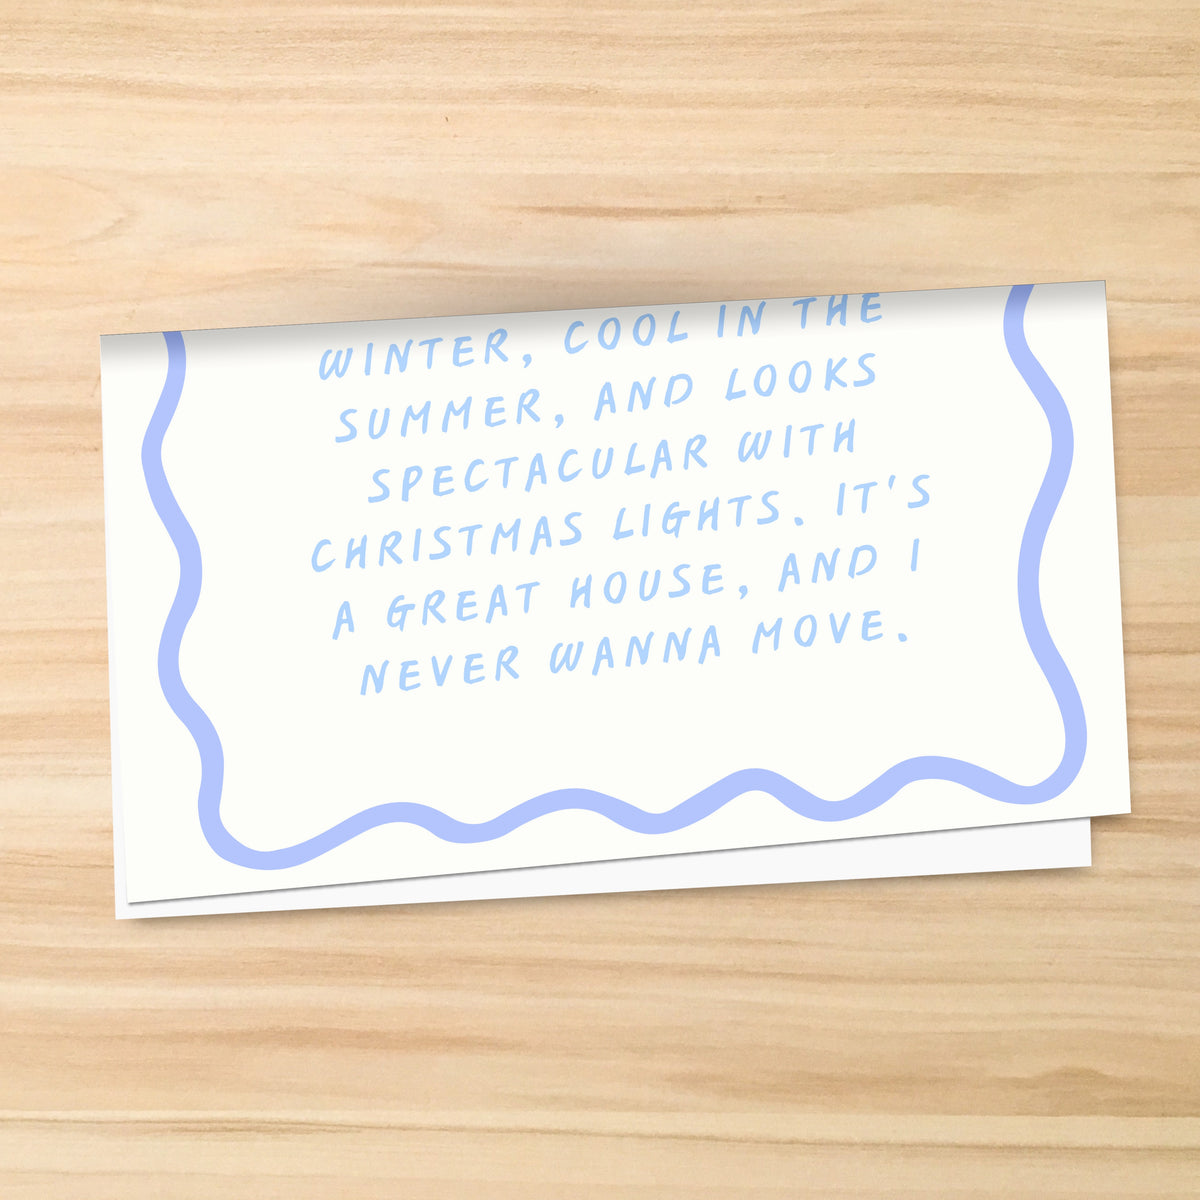 WINTER, COOL IN THE
SUMMER, AND LOOKS
SPECTACULAR WITH
CHRISTMAS LIGHTS. IT'S
A GREAT HOUSE, AND I
NEVER WANNA MOVE.